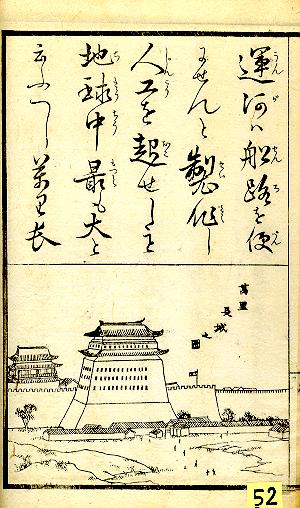 運河ハ船路を便
にせんと製作し
人工を起せしこと
地球中最も大と
云ふべし萬里長
萬里長城之図
52